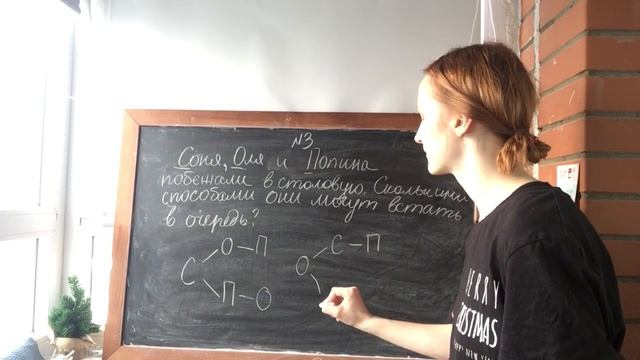 №3
Соня, Оля и Полина
побежали в столовую. Сколькими
способами они могут встать
в очередь?
О П
С
П О
С П
О
MERRY
CHRISTMAS
HAPPY NEW